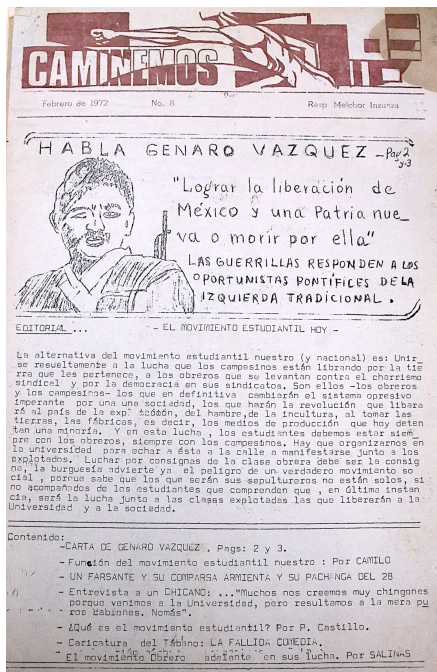 CAMINEMOS
Febrero de 1972 No. 8 Resp Melchor Inzunza
HABLA GENARO VAZQUEZ - Pag 2
y-3
"Lograr la liberación de
México y una Patria nue_
va o morir por ella"
LAS GUERRILLAS RESPONDEN A LOS
OPORTUNISTAS PONTÍFICES DE LA
IZQUIERDA TRADICIONAL.
EDITORIAL ... - EL MOVIMIENTO ESTUDIANTIL HOY -
La alternativa del movimiento estudiantil nuestro (y nacional) es: Unir_
se resueltamente a la lucha que los campesinos están librando por la tie
rra que les pertenece, a los obreros que se levantan contra el charrismo
sindical y por la democracia en sus sindicatos. Son ellos -los obreros
y los campesinos- los que en definitiva cambiarán el sistema opresivo
imperante por una una sociedad, los que harán la revolución que libara
rá al país de la del hambre, de la incultura, al tomar las
tierras, las fábricas, es decir, los medios de producción que hoy deten
tan una minoría. Y en esta lucha , los estudiantes debemos estar siem_
pre con los obreros, siempre con los campesinos. Hay que organizarnos en
la universidad para echar a ésta a la calle a manifestarse junto a los
explotados. Luchar por consignas de la clase obrera debe ser la consig
na, la burguesía advierte ya el peligro de un verdadero movimiento so
cial , porque sabe que los que serán sus sepultureros no están solos, si
no acompañados de los estudiantes que comprenden que , en última instan
cia, será la lucha junto a las clases explotadas las que liberarán a la
Universidad y a la sociedad.
Contenido:
-CARTA DE GENARO VAZQUEZ . Pags: 2 y 3.
- Función del movimiento estudiantil nuestro : Por CAMILO
- UN FARSANTE Y SU COMPARSA ARMIENTA Y SU PACHANGA DEL 28
- Entrevista a un CHICANO: ..."Muchos nos creemos muy chingones
porque venimos a la Universidad, pero resultamos a la mera pu
ros cabrones. Nomás".
- ¿Qué es el movimiento estudiantil? Por P. Castillo.
- Caricatura del Tábano: LA FALLIDA COMEDIA.
El movimiento Obrero adelante en sus lucha. Por SALINAS